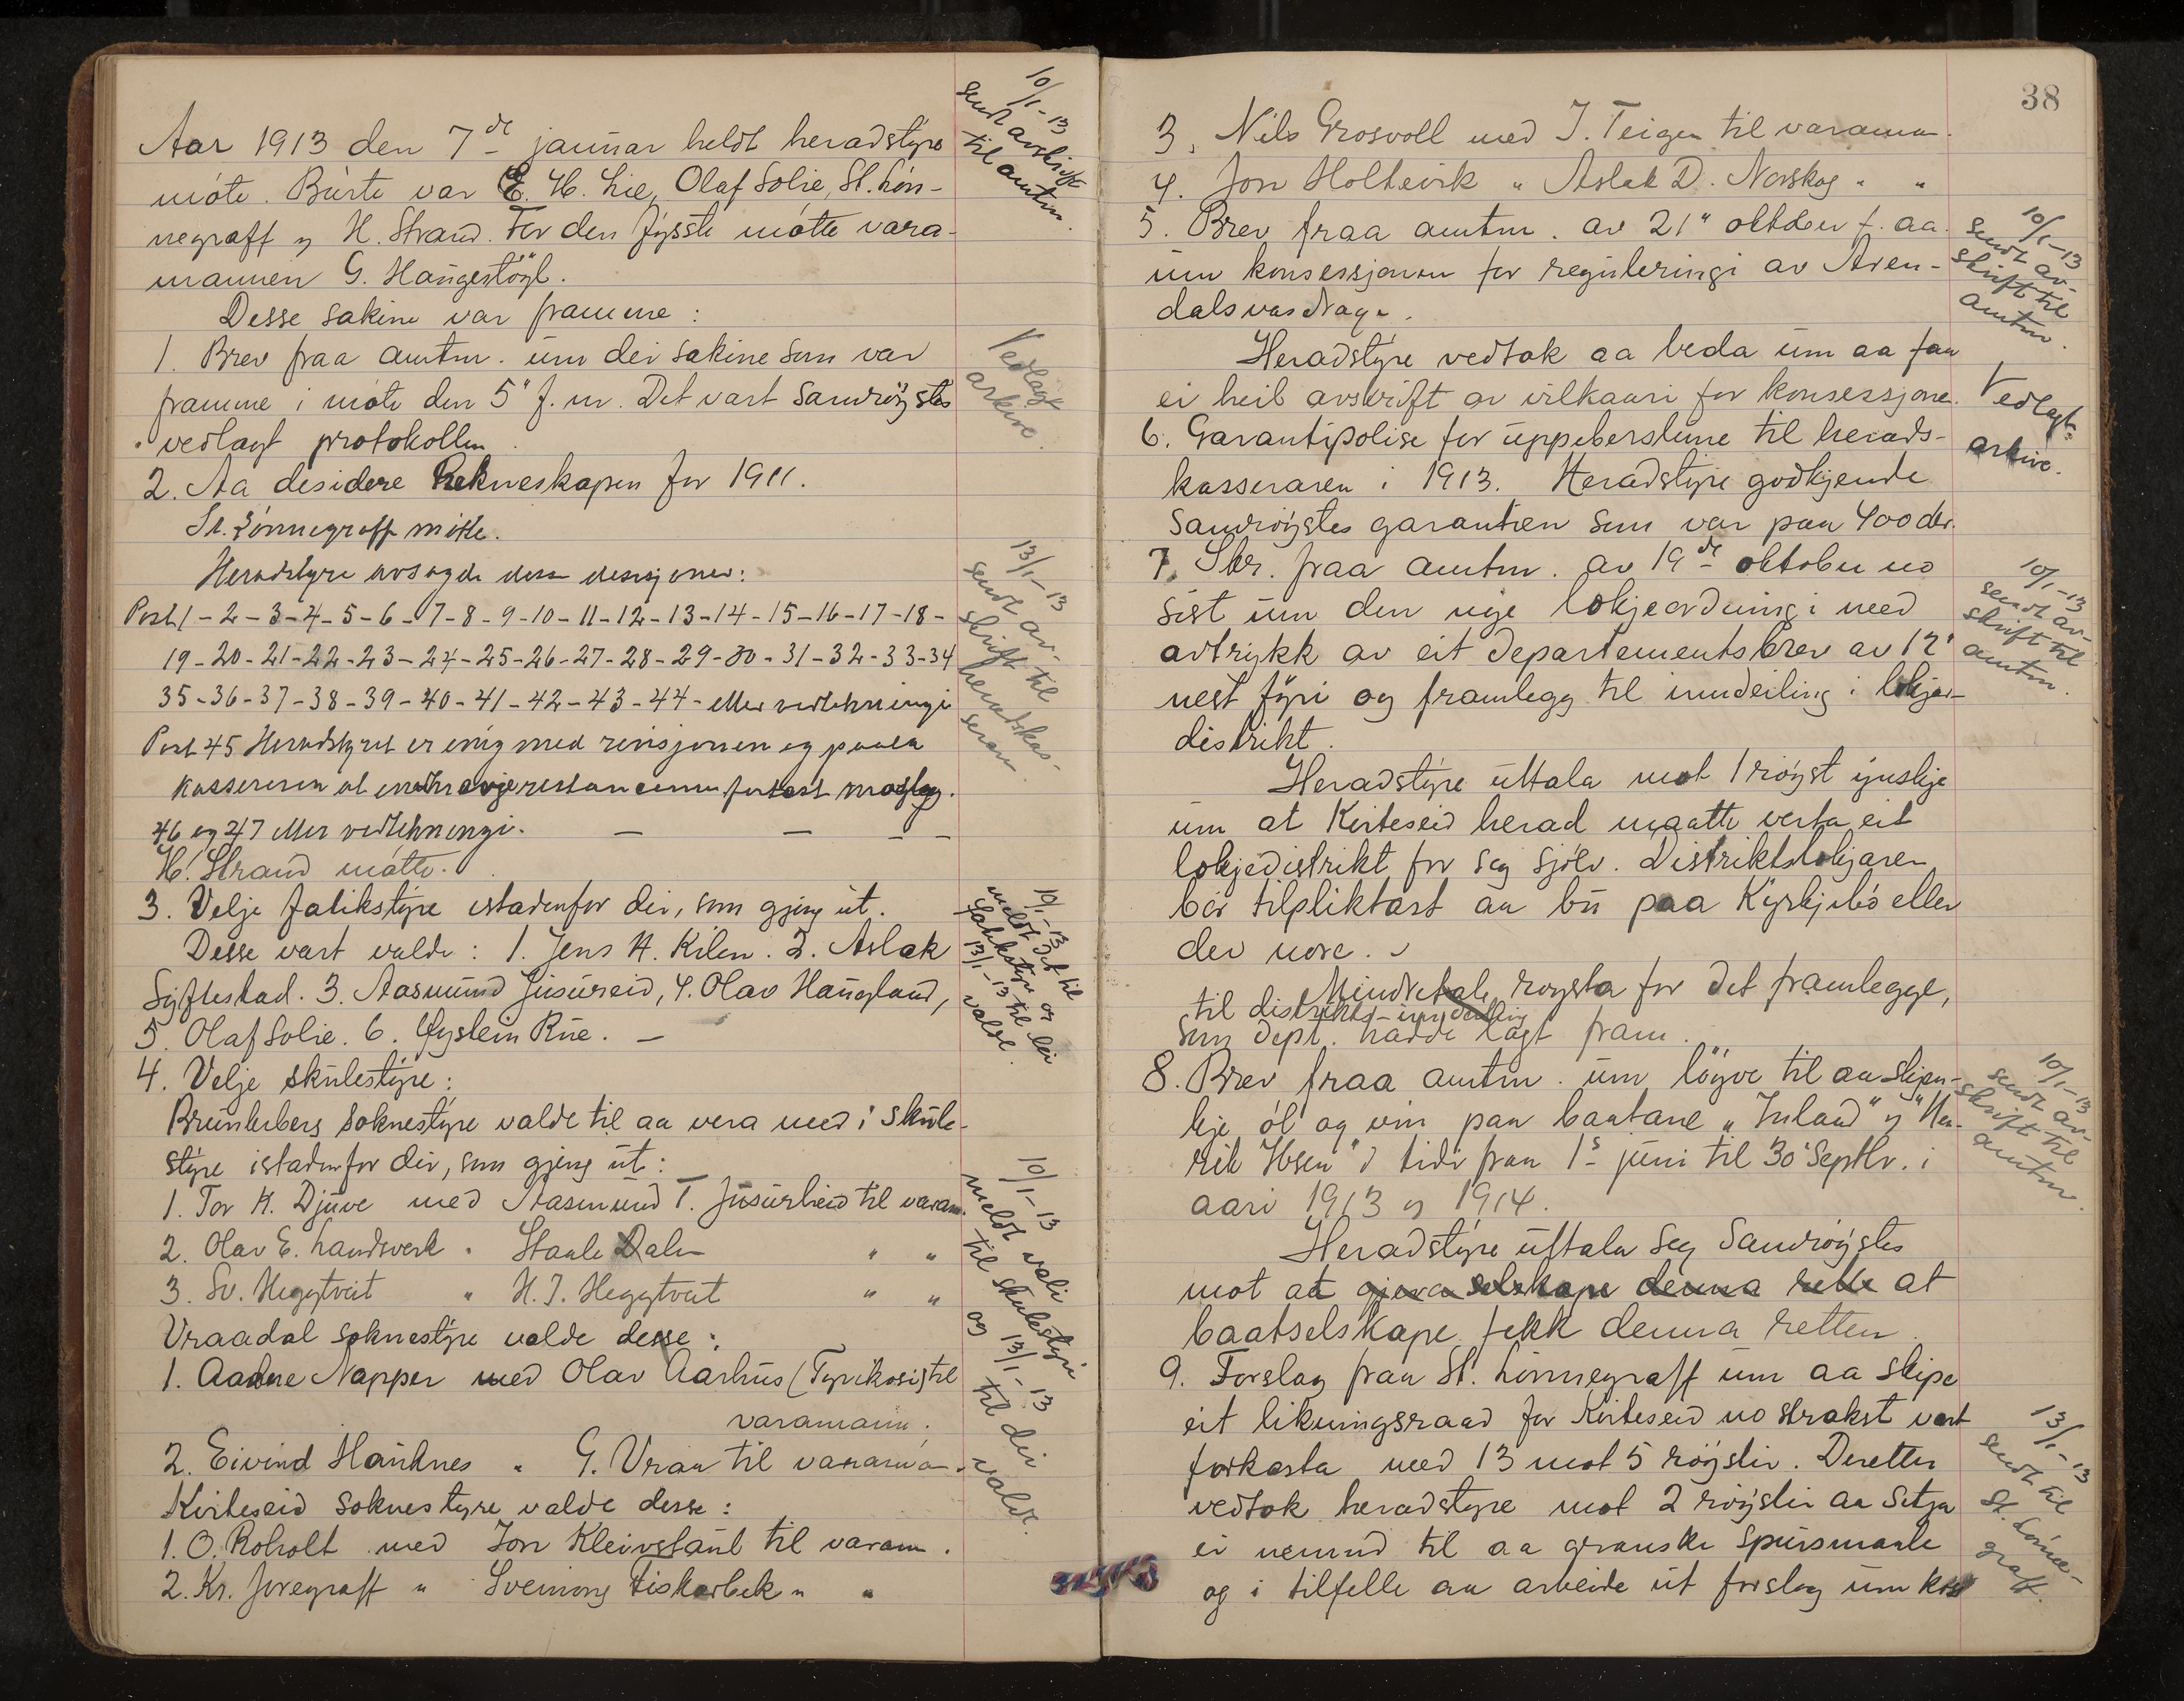 Aar 1913 den 7de januar heldt heradstyre
møte. Burte var E. H. Lie, Olaf Solie, St. Løn-
negraff og H. Strand. For den fysste møtte vara-
mannen G. Haugestøyl.
Desse sakine var framme:
1. Brev fraa amtm. um dei sakine som var
framme i møte den 5" f. m. Det vart samrøystes
vedlagt protokollen.
2. Aa desidere Rekneskapen for 1911.
St. Lønnegraff møtte.
Heradstyre avsagde desse desisjoner:
Post 1 - 2 - 3 - 4 - 5 - 6 - 7 - 8 - 9 - 10 - 11 - 12 - 13 - 14 - 15 - 16 - 17 - 18 -
19 - 20 - 21 - 22 - 23 - 24 - 25 - 26 - 27 - 28 - 29 - 30 - 31 - 32 - 33 - 34
35 - 36 - 37 - 38 - 39 - 40 - 41 - 42 - 43 - 44 - etter vedtekningi
Post 45 Heradstyret er enig med revisjonen og paalea
kassereren at
46 og 47 etter vedtekningi. — — — —
H. Strand møtte.
3. Velje fatikstyre istadenfor dei, som gjeng ut.
Desse vart valde: 1. Jens H. Kilen. 2. Aslak
Syftestad. 3. Aasmund Jusureid, 4. Olav Haugland,
5. Olaf Solie. 6. Øystein Rue. —
4. Velje skulestyre:
Brunkeberg soknestyre valde til aa vera med i skule-
styre istadenfor dei, som gjeng ut:
1. Tor K. Djuve med Aasmund T. Jusureid til varam.
2. Olav E. Landsverk " Staale Dalen " "
3. Sv. Heggtveit " H. J. Heggtveit " "
Vraadal soknestyre valde desse:
1. Aadne Napper med Olav Aarhus (Tyrikosi) til
varamann.
2. Eivind Hauknes " G. Vraa til varamann.
Kviteseid soknestyre valde desse:
1. O. Roholt med Jon Kleivstaul til varam.
2. Kr. Joregraff " Sveinung Fiskarbek " "
10/1-13
sendt avskrift
til amtm.
Vedlagt
arkive.
13/1-13
sendt av-
skrift til
heradskas-
seraren.
10/1-13
meldt det til
fatikstyre og
13/1-13 til dei
valde.
10/1-13
meldt vali
til skulestyre
og 13/1-13
til dei
valde.
38
3. Nils Grosvoll med J. Teigen til varamann.
4. Jon Holtevik " Aslak D. Norskog " "
5. Brev fraa amtm. av 21" oktober f. aa.
um konsessjonen for reguleringi av Aren-
dalsvasdrage.
Heradstyre vedtok aa beda um aa faa
ei heil avskrift av vilkaari for konsessjonen.
6. Garantipolise for uppeberslune til herads-
kasseraren i 1913. Heradstyre godkjende
samrøystes garantien som var paa 400 dlr.
7. Skr. fraa amtm. av 19de oktober no
sist um den nye lækjeordningi med
avtrykk av eit departementsbrev av 12"
nest fyri og framlegg til inndeiling i lækjar-
distrikt.
Heradstyre uttala mot 1 røyst ynskje
um at Kviteseid herad maatte verta eit
lækjedistrikt for seg sjølv. Distriktslækjaren
bør tilpliktast aa bu paa Kyrkjebø eller
der nære.
Mindretale røysta for det framlegge,
til distrikts-inndeiling
som dept. hadde lagt fram.
8. Brev fraa amtm. um løyve til aa skjen-
kje øl og vin paa baatane "Inland" og "Hen-
rik Ibsen" i tidi fraa 1s juni til 30 septbr. i
aari 1913 og 1914.
Heradstyre uttala seg samrøystes
mot at gjeva selskape denna rette at
baatselskape fekk denna retten.
9. Forslag fraa St. Lønnegraff um aa skipe
eit likningsraad for Kviteseid no strakst vart
forkasta med 13 mot 5 røyster. Deretter
vedtok heradstyre mot 2 røyster aa setja
ei nemnd til aa granske spursmaale
og i tilfelle aa arbeide ut forslag um
10/1-13
sendt av-
skrift til
amtm.
Vedlagt
arkive.
10/1-13
sendt av-
skrift til
amtm.
10/1-13
sendt av-
skrift til
amtm.
13/1-13
sendt til
St. Lønne-
graff.